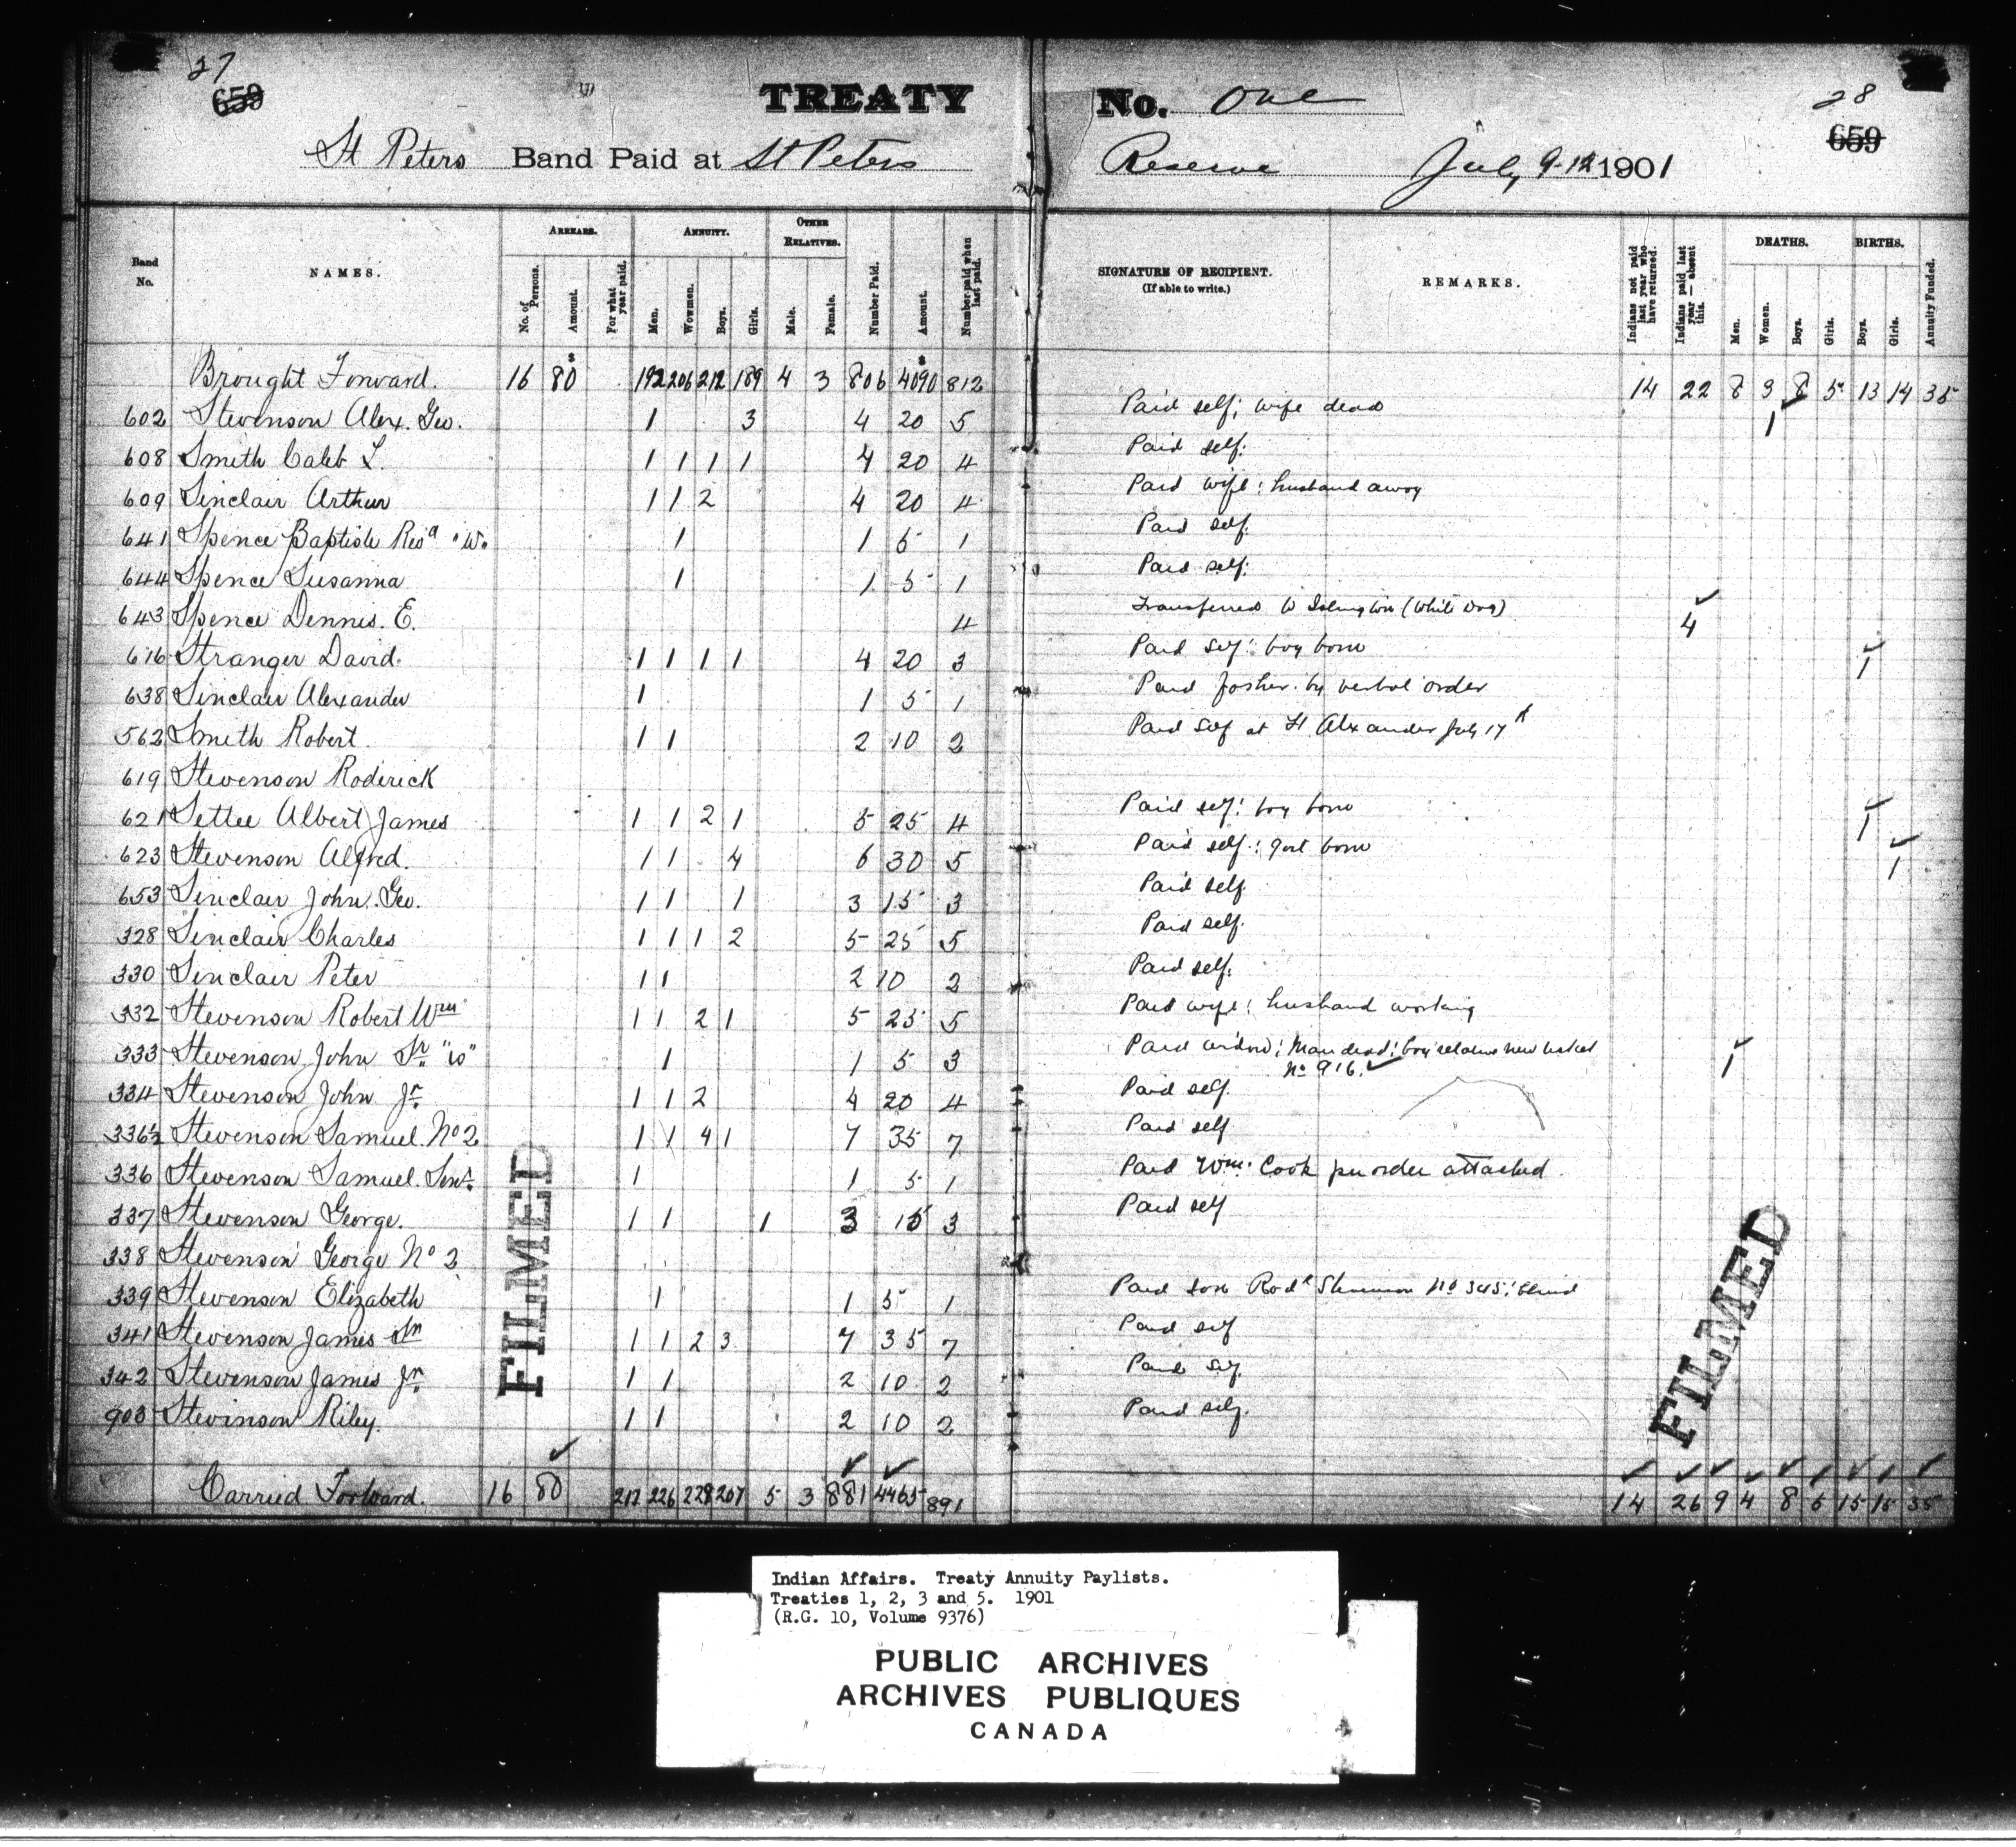 27
659
TREATY No. One
28
659
St Peters Band Paid at St Peters Reserve July 9-12 1901
Band No.
NAMES.
ARREARS.
No. of Persons.
Amount.
For what year paid.
ANNUITY.
Men.
Wowmen.
Boys.
Girls.
OTHER RELATIVES.
Male.
Female.
Number Paid.
Amount.
Number paid when last paid.
SIGNATURE OF RECIPIENT.
(If able to write.)
REMARKS.
Indians not paid last year who have returned.
Indians paid last year — absent this.
DEATHS.
Men.
Women.
Boys.
Girls.
BIRTHS.
Boys.
Girls.
Annuity Funded.
Brought Forward. 16 $80 192 206 212 189 4 3 806 $4090 812 14 22 8 3 8 5 13 14 35
602 Stevenson Alex. Geo. 1 3 4 20 5 Paid self; wife dead 1
608 Smith Caleb L. 1 1 1 1 4 20 4 Paid self.
609 Sinclair Arthur 1 1 2 4 20 4 Paid wife; husband away
641 Spence Baptiste "W" 1 1 5 1 Paid self.
644 Spence Susanna 1 1 5 1 Paid self.
643 Spence Dennis. E. 4 Transferred to Islington (White Dog) 4
616 Stranger David. 1 1 1 1 4 20 3 Paid self: boy born 1
638 Sinclair Alexander 1 1 5 1 Paid father by verbal order
562 Smith Robert 1 1 2 10 2 Paid self at Ft Alexander July 17th
619 Stevenson Roderick
621 Settee Albert James 1 1 2 1 5 25 4 Paid self: boy born 1
623 Stevenson Alfred. 1 1 4 6 30 5 Paid self: girl born 1
653 Sinclair John. Geo. 1 1 1 3 15 3 Paid self
328 Sinclair Charles 1 1 1 2 5 25 5 Paid self.
330 Sinclair Peter 1 1 2 10 2 Paid self.
332 Stevenson Robert Wm 1 1 2 1 5 25 5 Paid wife; husband working
333 Stevenson John Sr. "W" 1 1 5 3 Paid widow; Man dead; boy relative new ticket 1
No 916.
334 Stevenson John Jr. 1 1 2 4 20 4 Paid self.
336½ Stevenson Samuel. No 2 1 1 4 1 7 35 7 Paid self
336 Stevenson Samuel. Senr. 1 1 5 1 Paid Wm. Cook per order attached.
337 Stevenson George. 1 1 1 3 15 3 Paid self
338 Stevenson George No 2
339 Stevenson Elizabeth 1 1 5 1 Paid son Rodk Stevenson No 345; blind
341 Stevenson James Sn 1 1 2 3 7 35 7 Paid self
342 Stevenson James Jn. 1 1 2 10 2 Paid self.
903 Stevinson Riley. 1 1 2 10 2 Paid self.
Carried Forward. 16 80 212 226 228 207 5 3 881 4465 891 14 26 9 4 8 5 15 15 35
FILMED
FILMED
Indian Affairs. Treaty Annuity Paylists.
Treaties 1, 2, 3 and 5. 1901
(R.G. 10, Volume 9376)
PUBLIC ARCHIVES
ARCHIVES PUBLIQUES
CANADA